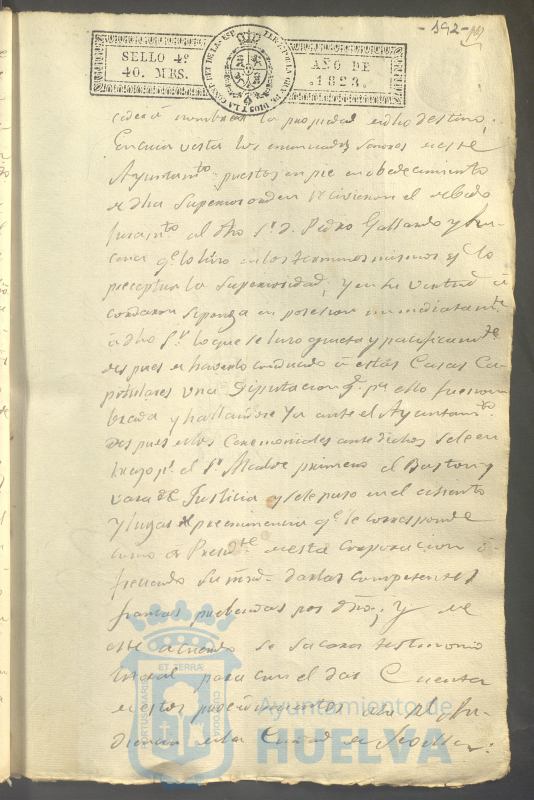 -192-
SELLO 4º
40. MRS.
AÑO DE
1823.
nombrar la propiedad en dho destino;
En cuia vista los enunciados Señores de este
Ayuntamto. puestos en pie en obedecimiento
de dha Superior orden recivieron el debido
Juramto al dho Sr. D. Pedro Gallardo y
qe. lo hizo en los terminos mismos qe lo
preceptua la Superioridad; y en su virtud a
cordaron se ponga en posesion inmediatamte
a dho Sr. lo que se hizo quieta y pacificamte
despues de haverlo conducido á estas Casas Ca
pitulares una Diputacion qe. pa ello fue nom
brada y hallandose ya ante el Ayuntamto
despues de los Ceremoniales ante dichos se le en
trego pr. el Sr. Alcalde primero el Baston y
vara de Justicia y se le puso en el asiento
y lugar preeminencia qe. le corresponde
como a Presidte de esta Corporacion o
freciendo su md. dar las competentes
fianzas prebenidas por dro; y de
este acuerdo se sacara testimonio
literal para con el dar Cuenta
de estos procedimientos a la Rl. Au
diencia de la Ciudad de Sevilla:
Ayuntamiento de
HUELVA
ET TERRÆ
PORTUS MARIS